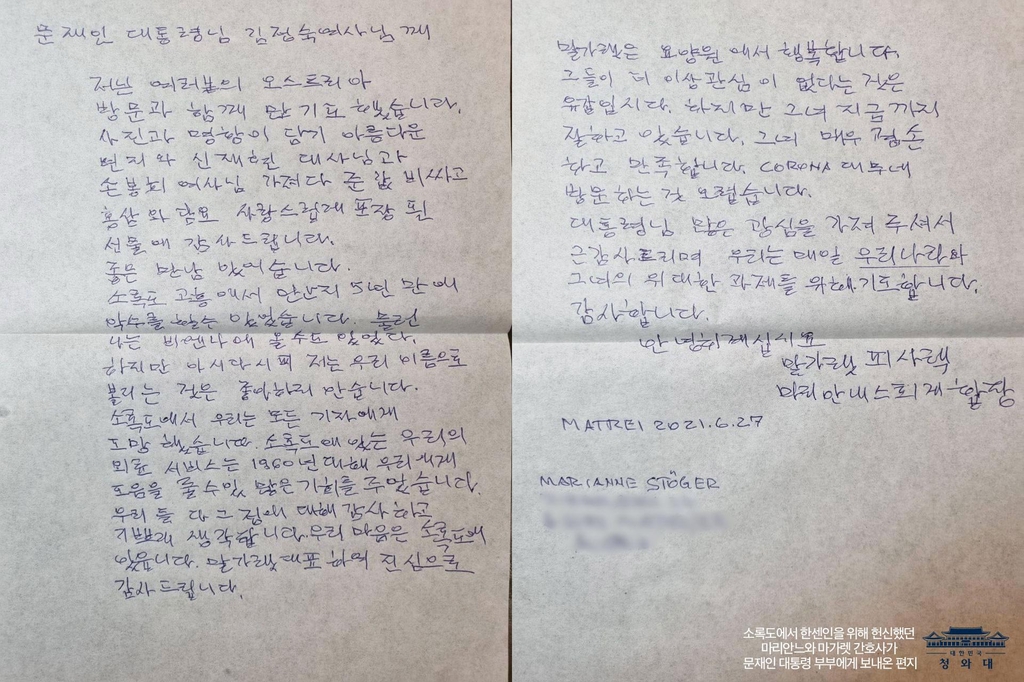 문재인 대통령님 김정숙여사님께
저는 여러분의 오스트리아
방문과 함께 만 기도 했습니다.
사진과 명함이 담긴 아름다운
편지와 신재현 대사님과
손봉희 여사님 가져다 준 값 비싸고
홍삼 와 담요 사랑스럽게 포장 된
선물에 감사드립니다.
좋은 만남 있어습니다.
소록도 고흥에서 5년 만에
악수를 할수 있었습니다. 물런
나는 비엔나에 올수도 있었다.
하지만 아시다시피 저는 우리 이름으로
불리는 것은 좋아하지 안습니다.
소록도에서 우리는 모든 기자에게
도망 했습니다. 소록도에 있는 우리의
서비스는 1960년대에 우리에게
도움을 줄수있 많은 기회를 주었습니다.
우리 둘 다 그 점에 대해 감사하고
기쁘게 생각합니다. 우리 마음은 소록도에
있읍니다. 말가렛 대표하여 진심으로
감사드립니다.
말가렛은 요양원에서 행복합니다.
그들이 더 이상 관심이 없다는 것은
유감입시다. 하지만 그녀 지금까지
잘하고 있습니다. 그녀 매우 겸손
하고 만족합니다. CORONA 때무네
방문하는 것 오렵습니다.
대통령님 많은 관심을 가져 주셔서
큰감사드리며 우리는 매일 우리나라와
그녀의 위대한 과제를 위해기도합니다.
감사합니다.
안녕히계십시요
말가렛 피사렉
마리안네 스퇴게 합장
MATREI 2021.6.27
MARIANNE STÖGER
소록도에서 한센인을 위해 헌신했던
마리안느와 마가렛 간호사가
문재인 대통령 부부에게 보내온 편지
대한민국
청와대